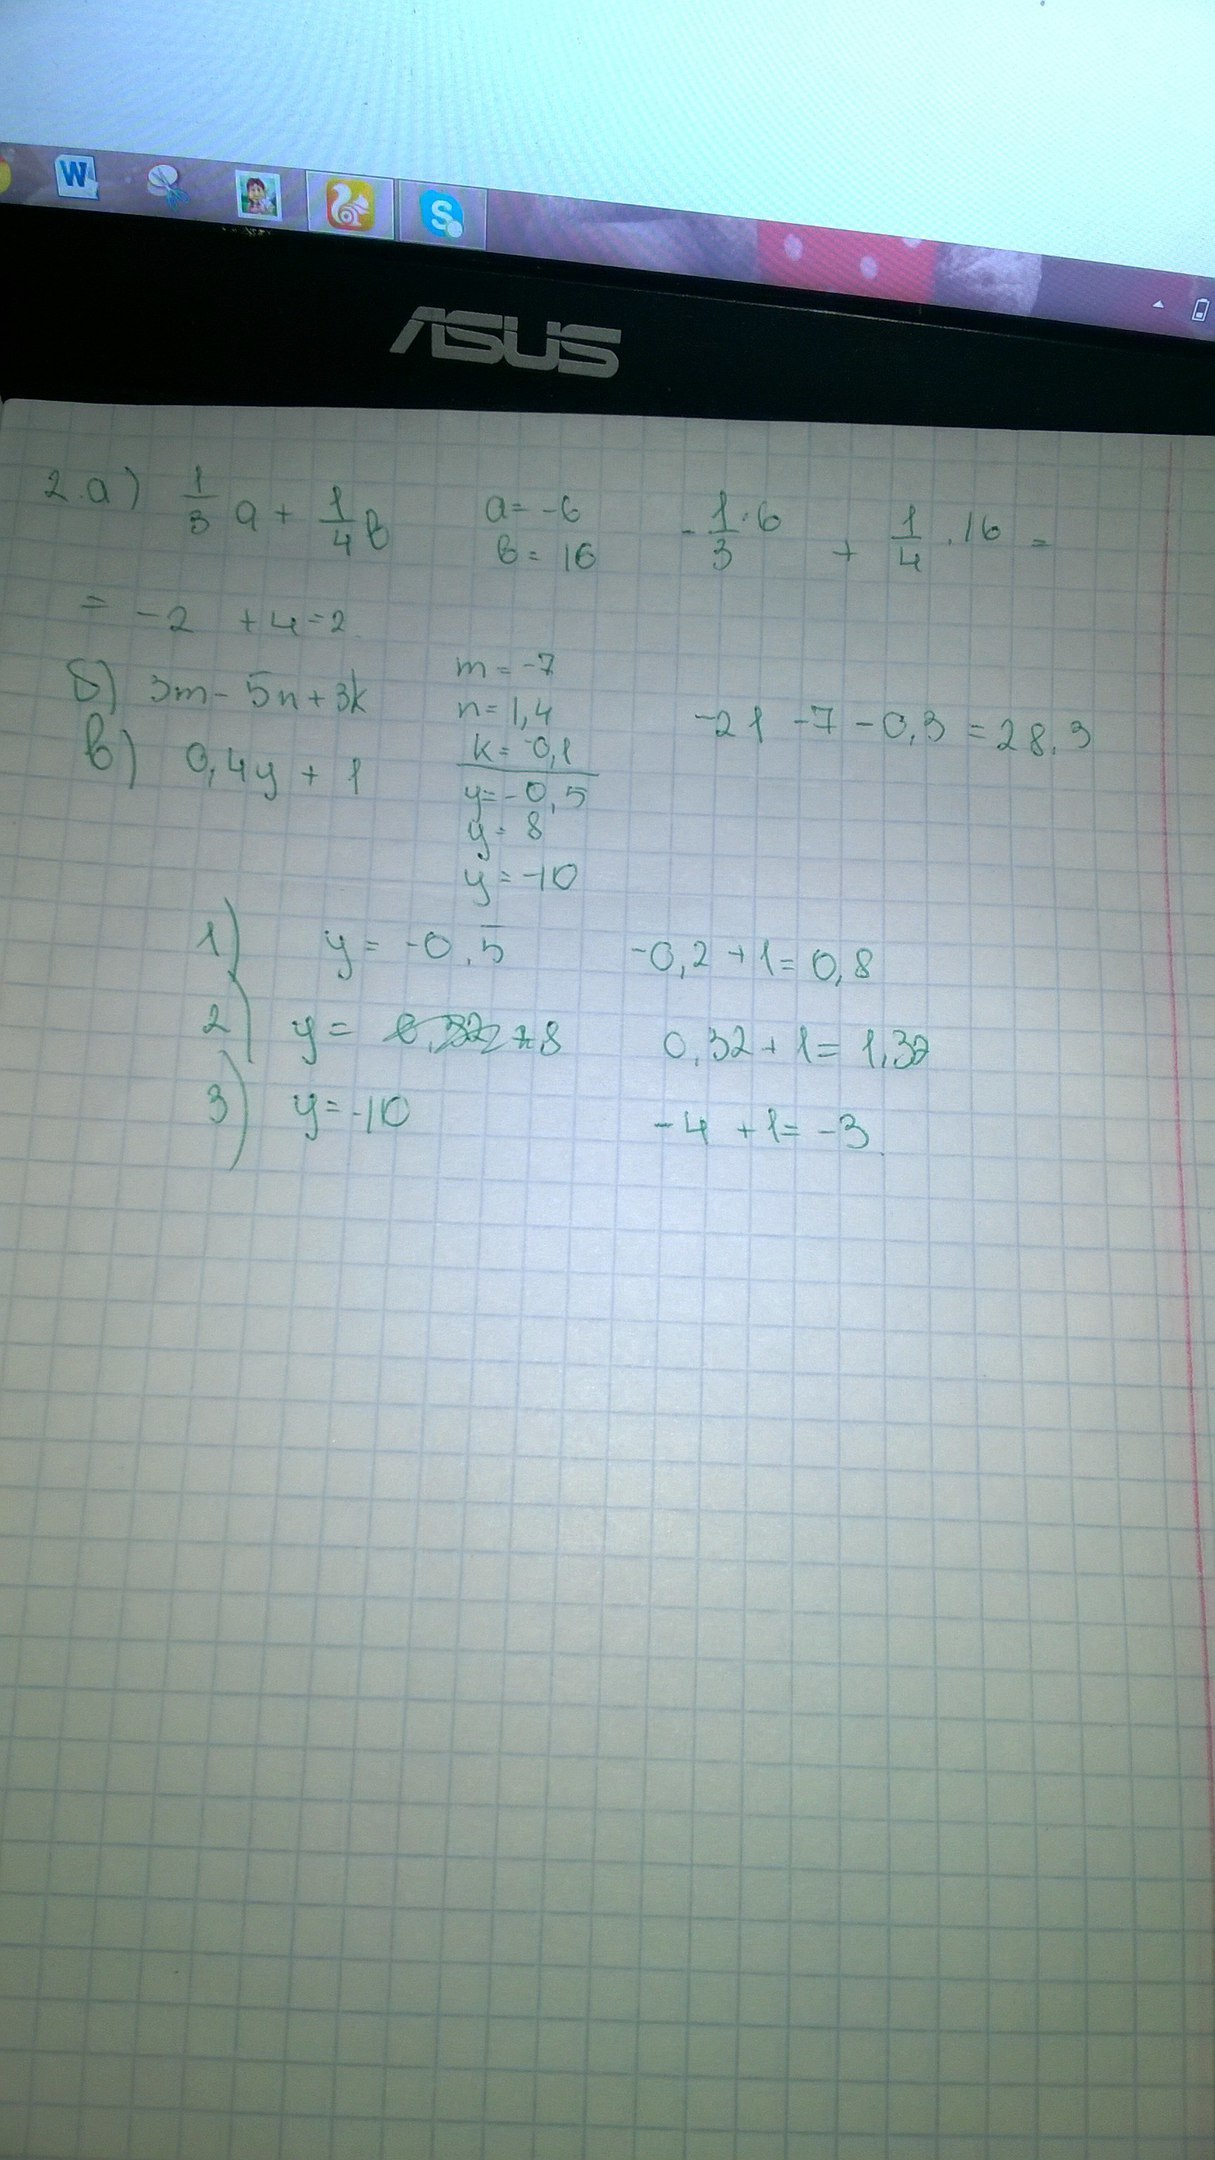 W S
ASUS
2.а) 1/3 a + 1/4 b a = -6 -1/3 · 6 + 1/4 · 16 =
b = 16
= -2 +4=2
б) 3m - 5n + 3k m = -7
n = 1,4 -21 -7 - 0,3 = 28,3
k = -0,1
в) 0,4y + 1 y = -0,5
y = 8
y = -10
1) y = -0,5 -0,2 + 1 = 0,8
2) y = 8 0,32 + 1 = 1,32
3) y = -10 -4 + 1 = -3